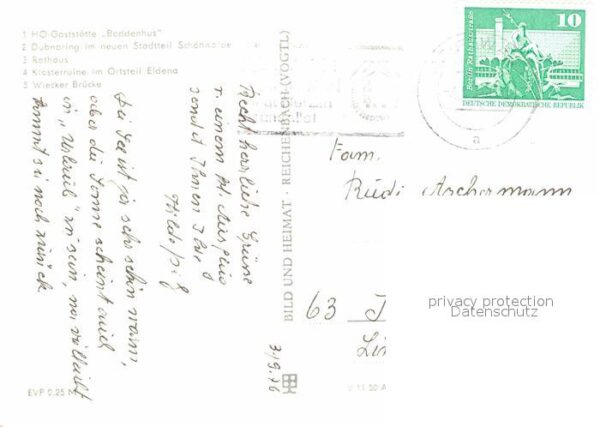 1 HO-Gaststätte „Boddenhus"
2 Dubnaring im neuen Stadtteil Schönwalde
3 Rathaus
4 Klosterruine im Ortsteil Eldena
5 Wiecker Brücke
Recht herzliche Grüße
einem
sendet Ihnen
Hilde
3/9.76
Die See ist ja sehr schön warm,
aber die Sonne scheint auch
in „Urlaub" zu sein, na vielleicht
kommt sie noch zurück
EVP 0,25 M
BILD UND HEIMAT · REICHENBACH (VOGTL)
10
Berlin, Rathausstraße
DEUTSCHE DEMOKRATISCHE REPUBLIK
a
Fam.
Rudi Aschermann
63
privacy protection
Datenschutz